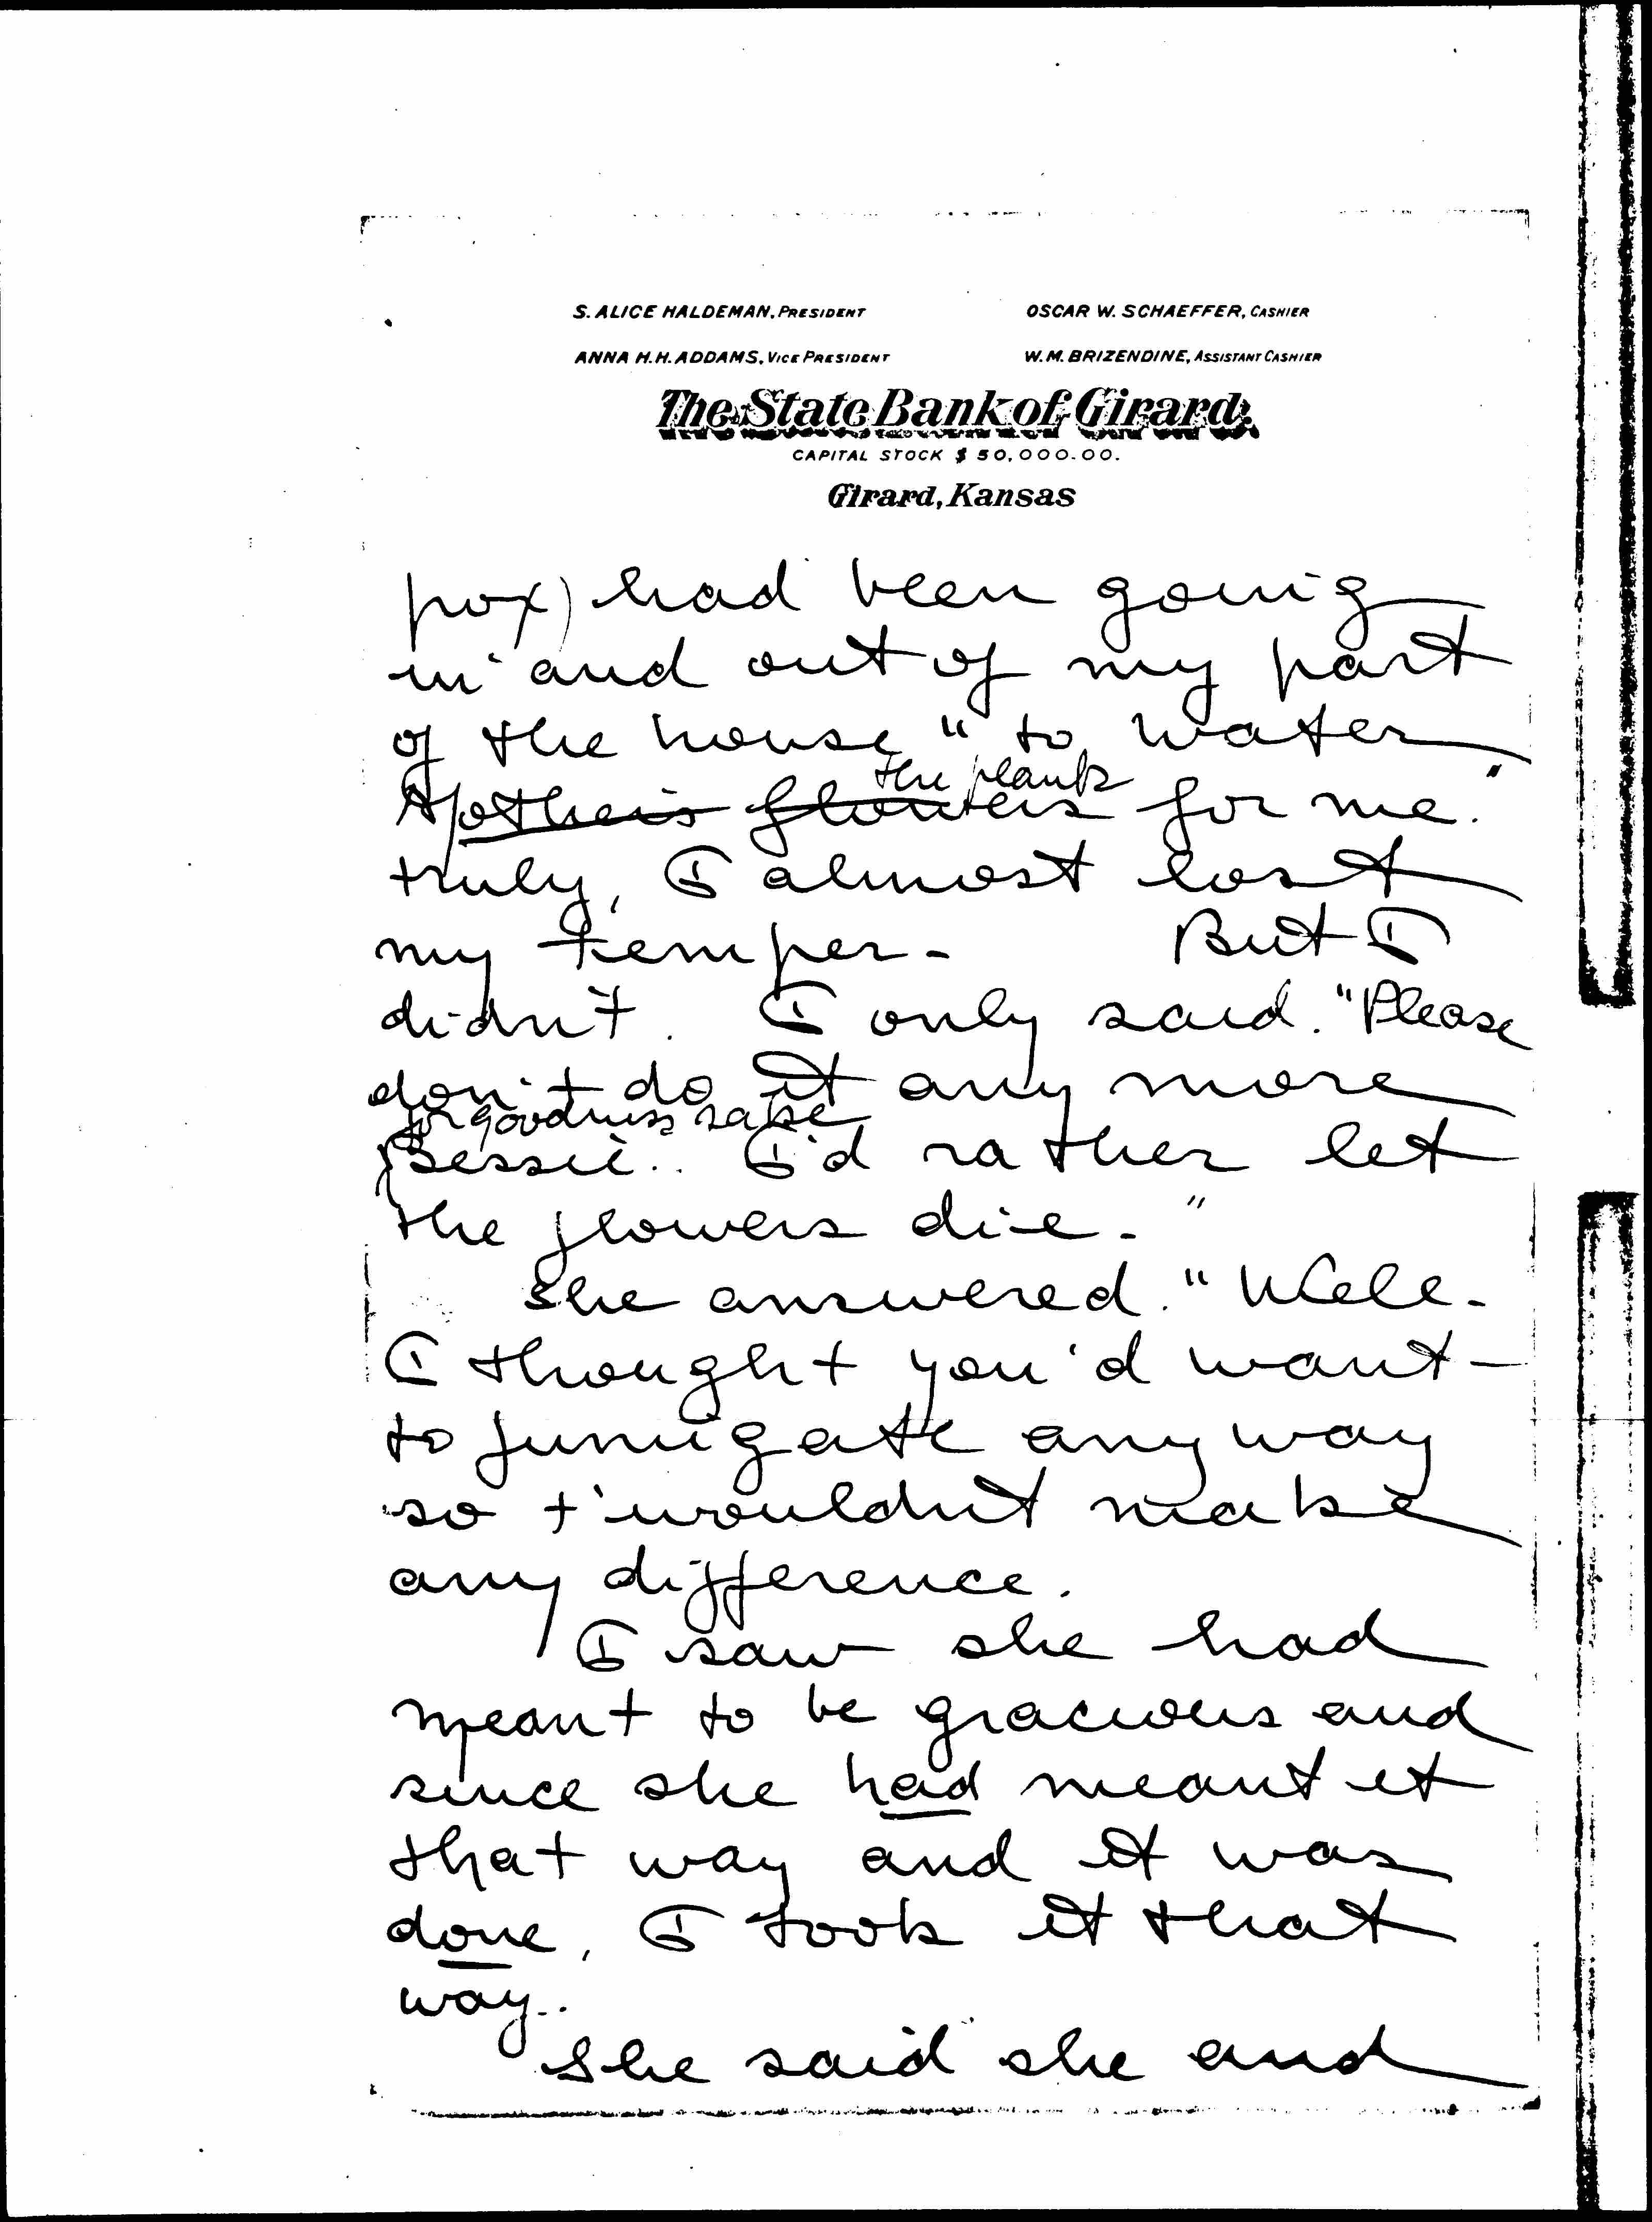 S. ALICE HALDEMAN, PRESIDENT
OSCAR W. SCHAEFFER, CASHIER
ANNA H.H. ADDAMS, VICE PRESIDENT
W.M. BRIZENDINE, ASSISTANT CASHIER
The State Bank of Girard
CAPITAL STOCK $ 50,000.00.
Girard, Kansas
pox) had been going
in and out of my part
of the house "to water
the plants
Mother's flowers for me."
truly, I almost lost
my temper- But I
didn't. I only said. "Please
don't do it any more
for goodness sake
Bessie.. I'd rather let
the flowers die-"
She answered. "Well-
I thought you'd want-
to fumigate any way
so t'wouldn't make
any difference.
I saw she had
meant to be gracious and
since she had meant it
that way and it was
done, I took it that
way..
She said she and